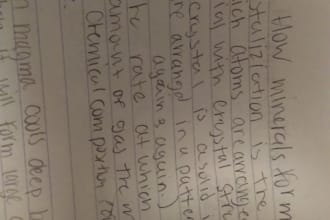 How minerals form
tallization is the
ich atoms are arranged
ial with crystal
crystal is a solid
re arrangd in a patter
again & again.)
te rate at which
amount of gas the m
chemical composition
magma cools deep
it will form large